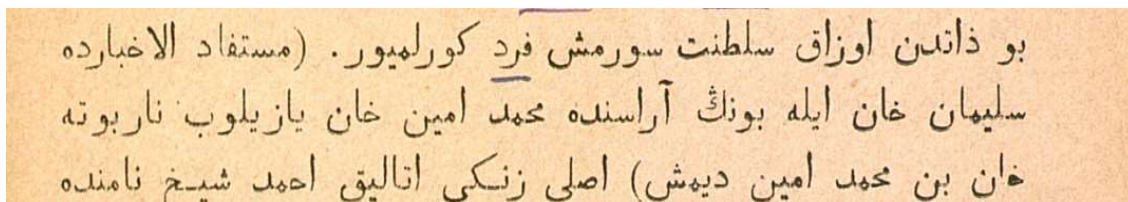 بو ذاتدن اوزاق سلطنت سورمش فرد كورلميور. (مستفاد الاخبارده
سليمان خان ايله بونڭ آراسنده محمد امين خان يازيلوب ناربوته
خان بن محمد امين ديمش) اصلى زنكى اتاليق احمد شيخ نامنده